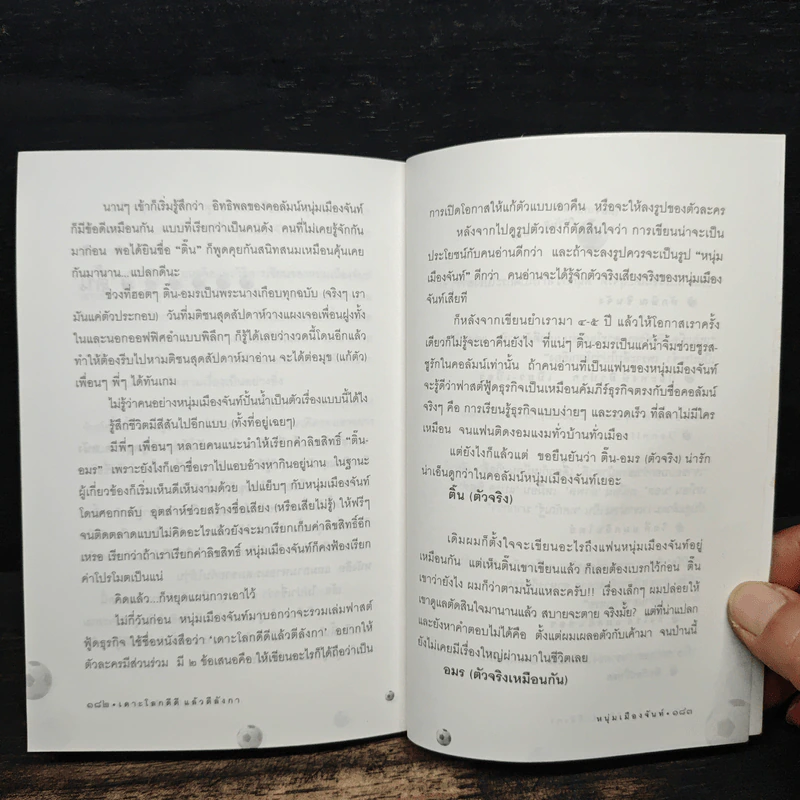 นานๆ เข้าก็เริ่มรู้สึกว่า อิทธิพลของคอลัมน์หนุ่มเมืองจันท์
ก็มีข้อดีเหมือนกัน แบบที่เรียกว่าเป็นคนดัง คนที่ไม่เคยรู้จักกัน
มาก่อน พอได้ยินชื่อ “ติ๊น” ก็พูดคุยกันสนิทสนมเหมือนคุ้นเคย
กันมานาน...แปลกดีนะ
ช่วงที่ฮอตๆ ติ๊น-อมรเป็นพระนางเกือบทุกฉบับ (จริงๆ เรา
มันแค่ตัวประกอบ) วันที่มติชนสุดสัปดาห์วางแผงเจอเพื่อนฝูงทั้ง
ในและนอกออฟฟิศอำแบบพิลึกๆ ก็รู้ได้เลยว่างวดนี้โดนอีกแล้ว
ทำให้ต้องรีบไปหามติชนสุดสัปดาห์มาอ่าน จะได้ต่อมุข (แก้ตัว)
เพื่อนๆ พี่ๆ ได้ทันเกม
ไม่รู้ว่าคนอย่างหนุ่มเมืองจันท์ปั้นน้ำเป็นตัวเรื่องแบบนี้ได้ไง
รู้สึกชีวิตมีสีสันไปอีกแบบ (ทั้งที่อยู่เฉยๆ)
มีพี่ๆ เพื่อนๆ หลายคนแนะนำให้เรียกค่าลิขสิทธิ์ “ติ๊น-
อมร” เพราะยังไงก็เอาชื่อเราไปแอบอ้างหากินอยู่นาน ในฐานะ
ผู้เกี่ยวข้องก็เริ่มเห็นดีเห็นงามด้วย ไปแย็บๆ กับหนุ่มเมืองจันท์
โดนศอกกลับ อุตส่าห์ช่วยสร้างชื่อเสียง (หรือเสียไม่รู้) ให้ฟรีๆ
จนติดตลาดแบบไม่คิดอะไรแล้วยังจะมาเรียกเก็บค่าลิขสิทธิ์อีก
เหรอ เรียกว่าถ้าเราเรียกค่าลิขสิทธิ์ หนุ่มเมืองจันท์ก็คงฟ้องเรียก
ค่าโปรโมตเป็นแน่
คิดแล้ว...ก็หยุดแผนการเอาไว้
ไม่กี่วันก่อน หนุ่มเมืองจันท์มาบอกว่าจะรวมเล่มฟาสต์
ฟู้ดธุรกิจ ใช้ชื่อหนังสือว่า ‘เดาะโลกดีดีแล้วตีลังกา’ อยากให้
ตัวละครมีส่วนร่วม มี ๒ ข้อเสนอคือ ให้เขียนอะไรก็ได้ถือว่าเป็น
๑๘๒ • เดาะโลกดีดี แล้วตีลังกา
การเปิดโอกาสให้แก้ตัวแบบเอาคืน หรือจะให้ลงรูปของตัวละคร
หลังจากไปดูรูปตัวเองก็ตัดสินใจว่า การเขียนน่าจะเป็น
ประโยชน์กับคนอ่านดีกว่า และถ้าจะลงรูปควรจะเป็นรูป “หนุ่ม
เมืองจันท์” ดีกว่า คนอ่านจะได้รู้จักตัวจริงเสียงจริงของหนุ่มเมือง
จันท์เสียที
ก็หลังจากเขียนยำเรามา ๔-๕ ปี แล้วให้โอกาสเราครั้ง
เดียวก็ไม่รู้จะเอาคืนยังไง ที่แน่ๆ ติ๊น-อมรเป็นแค่น้ำจิ้มช่วยชูรส-
ชูรักในคอลัมน์เท่านั้น ถ้าคนอ่านที่เป็นแฟนของหนุ่มเมืองจันท์
จะรู้ดีว่าฟาสต์ฟู้ดธุรกิจเป็นเหมือนคัมภีร์ธุรกิจตรงกับชื่อคอลัมน์
จริงๆ คือ การเรียนรู้ธุรกิจแบบง่ายๆ และรวดเร็ว ที่ลีลาไม่มีใคร
เหมือน จนแฟนติดงอมแงมทั่วบ้านทั่วเมือง
แต่ยังไงก็แล้วแต่ ขอยืนยันว่า ติ๊น-อมร (ตัวจริง) น่ารัก
น่าเอ็นดูกว่าในคอลัมน์หนุ่มเมืองจันท์เยอะ
ติ๊น (ตัวจริง)
เดิมผมก็ตั้งใจจะเขียนอะไรถึงแฟนหนุ่มเมืองจันท์อยู่
เหมือนกัน แต่เห็นติ๊นเขาเขียนแล้ว ก็เลยต้องเบรกไว้ก่อน ติ๊น
เขาว่ายังไง ผมก็ว่าตามนั้นแหละครับ!! เรื่องเล็กๆ ผมปล่อยให้
เขาดูแลตัดสินใจมานานแล้ว สบายจะตาย จริงมั้ย? แต่ที่น่าแปลก
และยังหาคำตอบไม่ได้คือ ตั้งแต่ผมเผลอตัวกับเค้ามา จนป่านนี้
ยังไม่เคยมีเรื่องใหญ่ผ่านมาในชีวิตเลย
อมร (ตัวจริงเหมือนกัน)
หนุ่มเมืองจันท์ • ๑๘๓